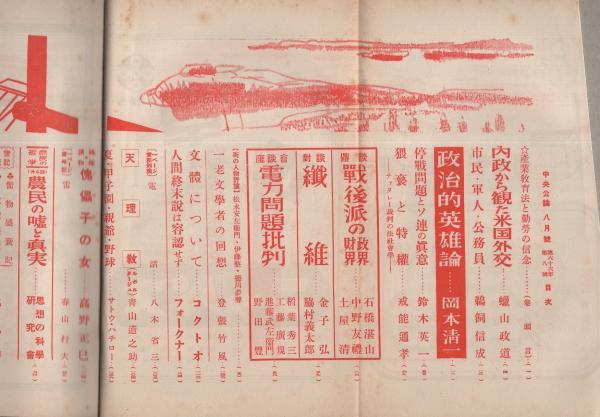 中央公論 八月號 目次
☆産業教育法と勤勞の信念 (卷頭言)
内政から觀た米国外交 蠟山政道
市民・軍人・公務員 鵜飼信成
政治的英雄論 岡本清一
停戰問題とソ連の眞意 鈴木英一
猥褻と特權 戒能通孝
―チャタレー裁判の法社會學―
鼎談 戰後派の政界財界
石橋湛山
中野友禮
土屋清
對談 纖維
金子弘
脇村義太郎
座談會 電力問題批判
稻葉秀三
工藤廣規
進藤武左衛門
野田豊
松永安左衛門・伊藤整・
一老文學者の回想 登張竹風
文體について コクトオ
人間終末說は容認せず フォークナー
電話 八木省三
天理教 青山道之助
夏・甲子園・親爺・野球 サトウ・ハチロー
雷 春山行夫
傀儡子の女 高野正巳
農民の嘘と真実 思想の科學研究會